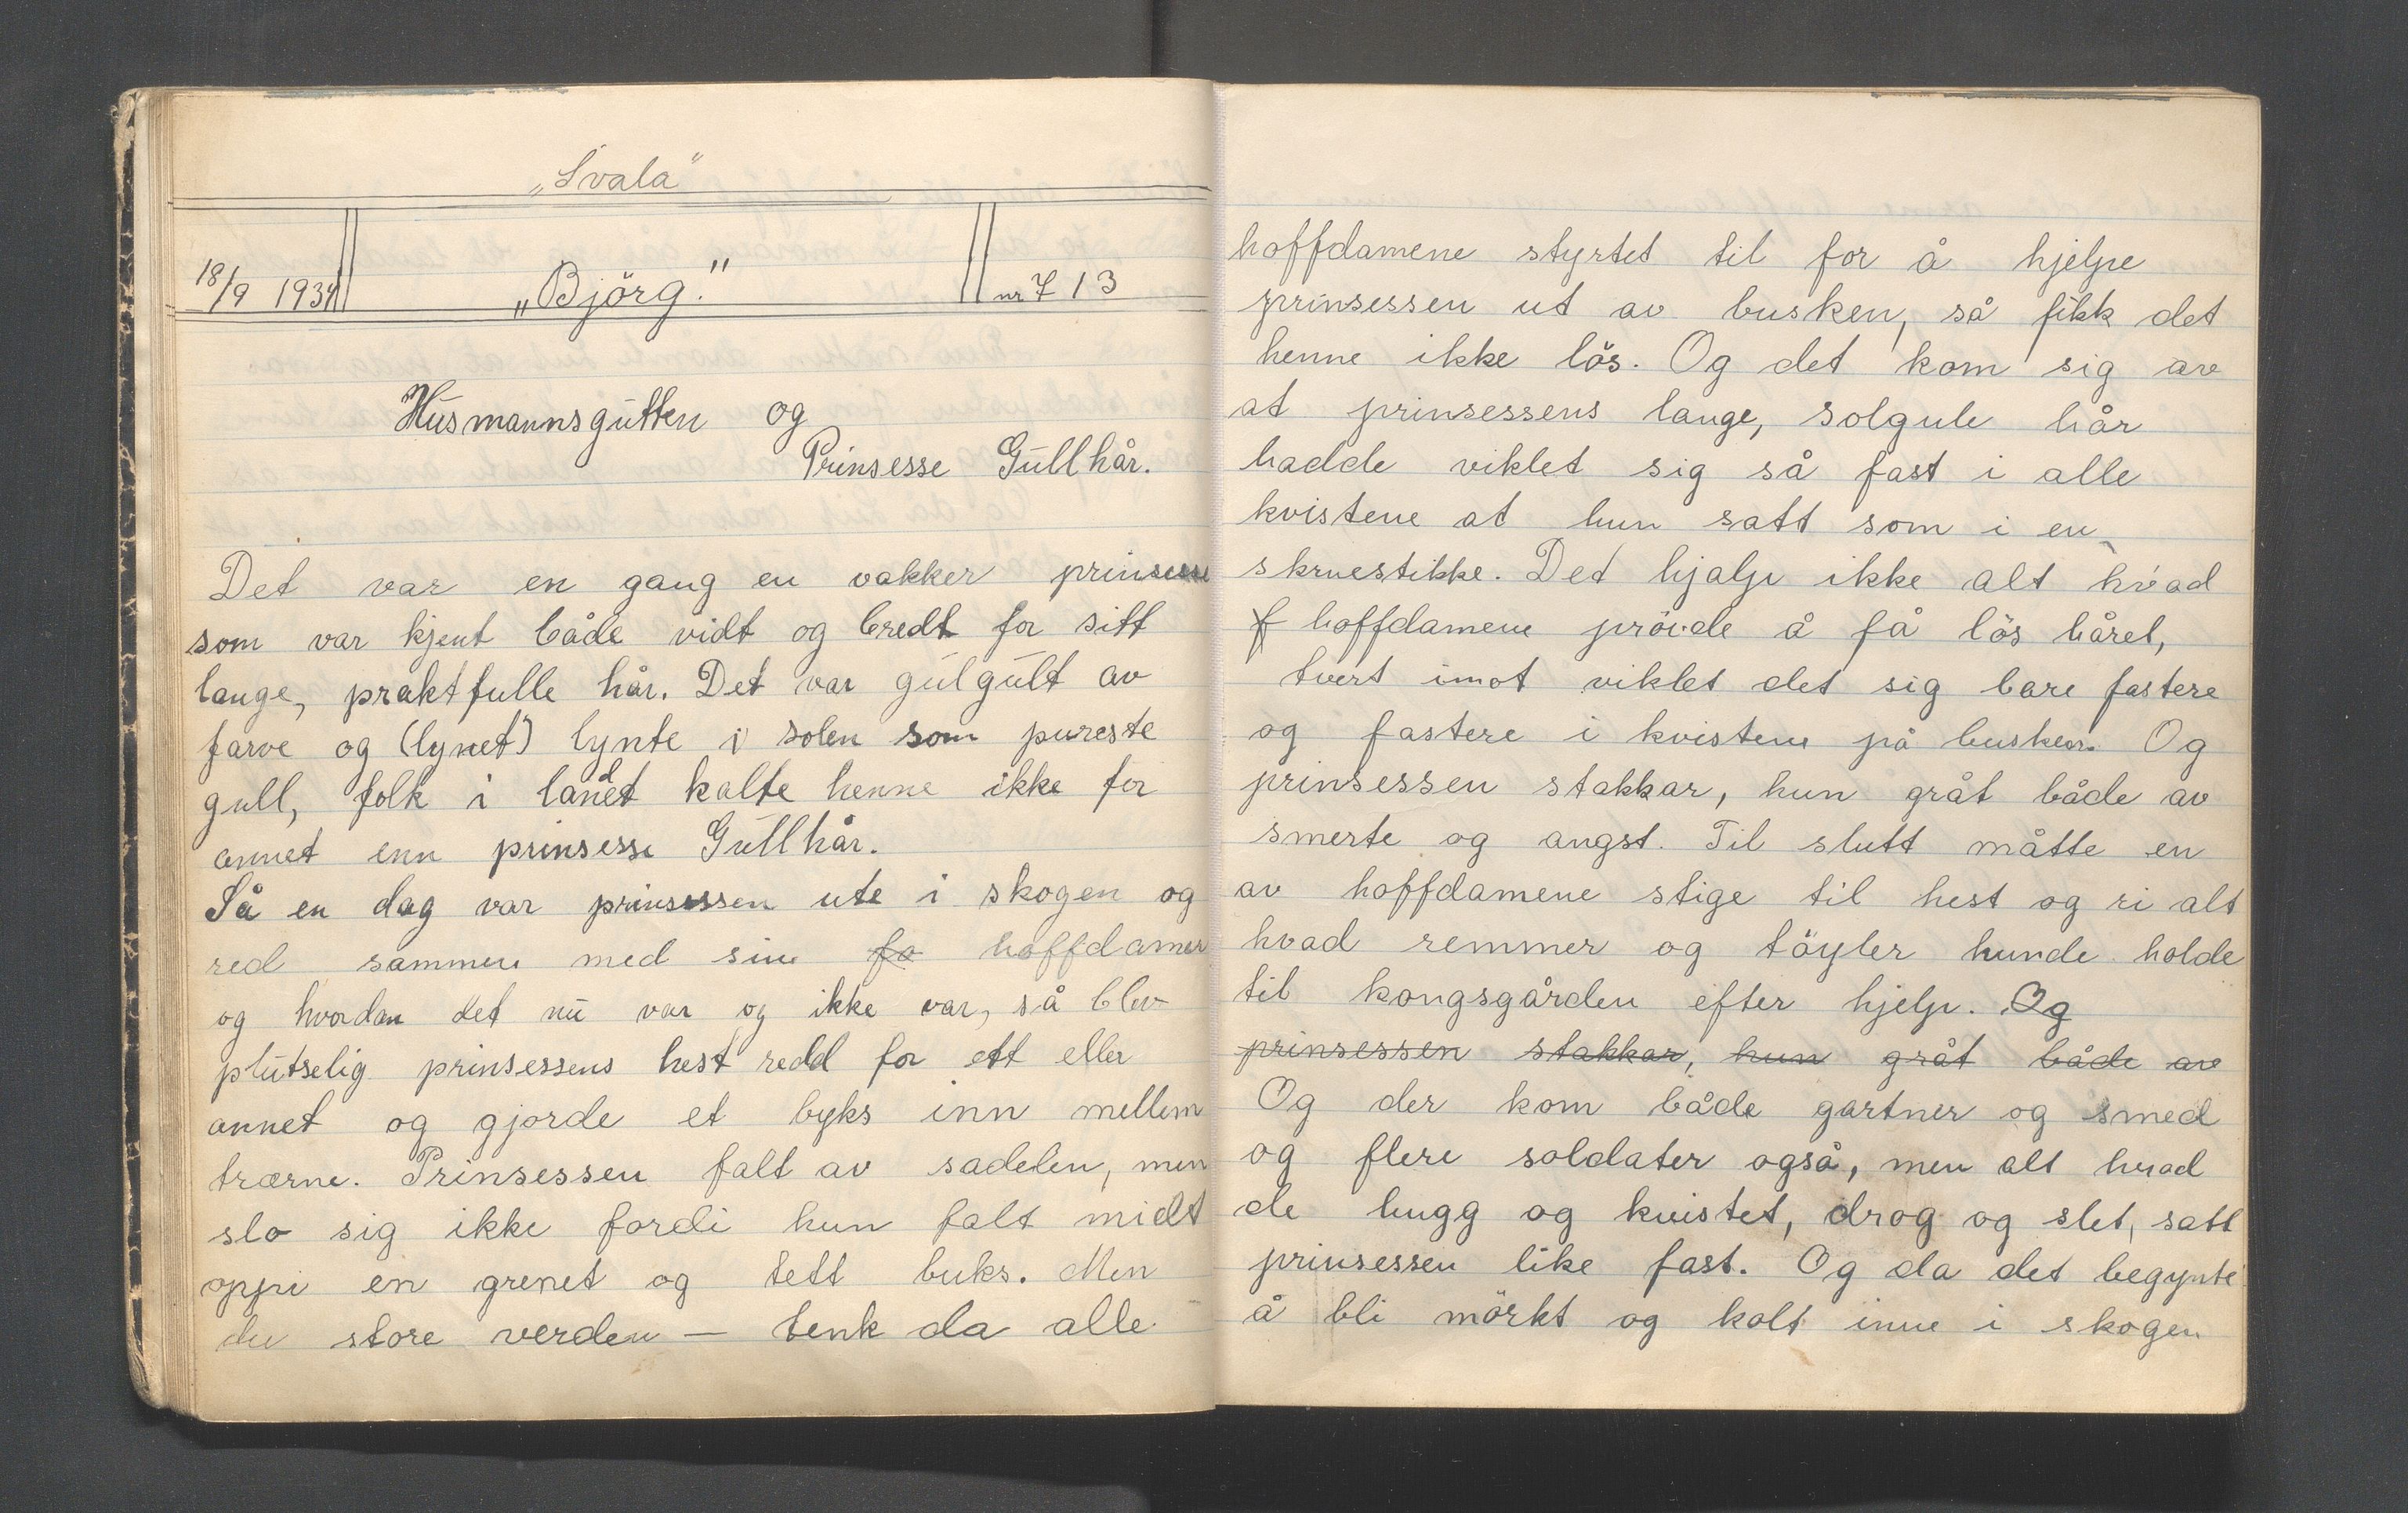 „Svala"
18/9 1934 „Björg." nr 7 13
Husmannsgutten og
Prinsesse Gullhår.
Det var en gang en vakker prinsesse
som var kjent både vidt og bredt for sitt
lange, praktfulle hår. Det var gulgult av
farve og (lynet) lynte i solen som pureste
gull, folk i landet kalte henne ikke for
annet enn prinsesse Gullhår.
Så en dag var prinsessen ute i skogen og
red sammen med sine fo hoffdamer
og hvordan det nu var og ikke var, så blev
plutselig prinsessens hest redd for ett eller
annet og gjorde et byks inn mellem
trærne. Prinsessen falt av sadelen, men
slo sig ikke fordi hun falt midt
oppi en grenet og tett buks. Men
du store verden — tenk da alle
hoffdamene styrtet til for å hjelpe
prinsessen ut av busken, så fikk det
henne ikke lös. Og det kom sig av
at prinsessens lange, solgule hår
hadde viklet sig så fast i alle
kvistene at hun satt som i en
skruestikke. Det hjalp ikke alt hvad
f hoffdamene prövde å få lös håret,
tvert imot viklet det sig bare fastere
og fastere i kvistene på busken. Og
prinsessen stakkar, hun gråt både av
smerte og angst. Til slutt måtte en
av hoffdamene stige til hest og ri alt
hvad remmer og töyler kunde holde
til kongsgården efter hjelp. Og
prinsessen stakkar, hun gråt både av
Og der kom både gartner og smed
og flere soldater også, men alt hvad
de hugg og kvistet, drog og slet, satt
prinsessen like fast. Og da det begynte
å bli mörkt og kolt inne i skogen